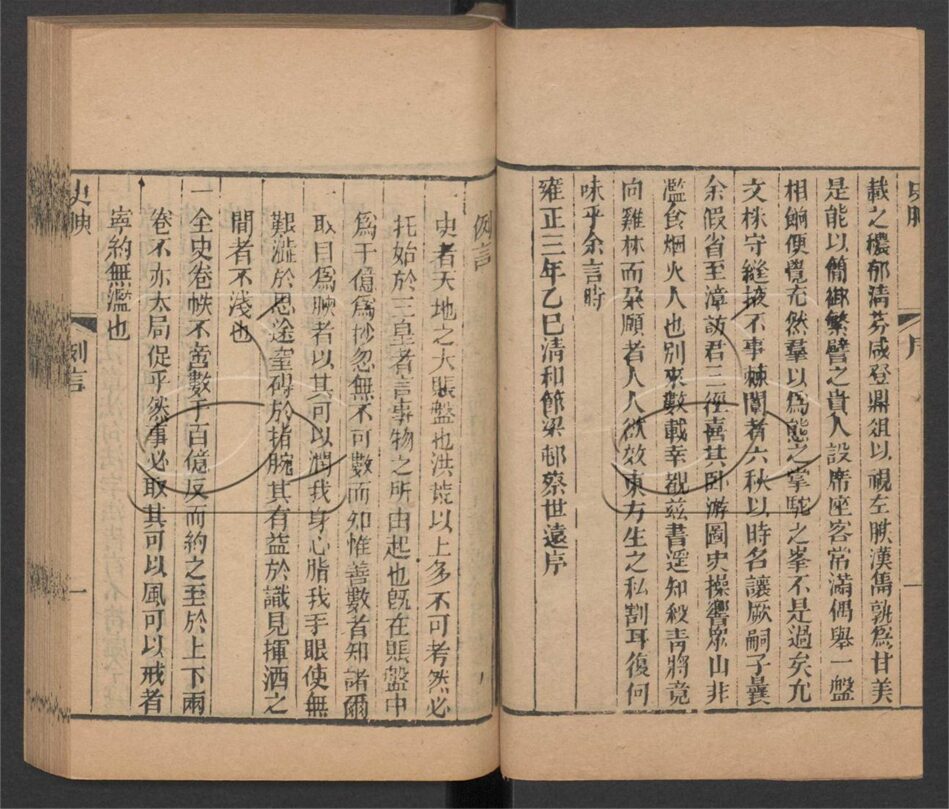 史腴
序
載之穠郁清芬咸登鼎俎以視左腴漢雋孰爲甘美
是能以簡御繁譬之貴人設席座客常滿偶舉一盤
相餉便覺充然羣以爲熊之掌駝之峯不是過矣允
文株守縫掖不事棘闈者六秋以時名讓厥嗣子曩
余假省至漳訪君三徑喜其卧游圖史操響衆山非
濫食烟火人也別來數載幸覩兹書遥知殺青將竟
向雞林而朶頤者人人欲效東方生之私割耳復何
味乎余言時
雍正三年乙巳清和節梁邨蔡世遠序
例言
史者天地之大賬盤也洪荒以上多不可考然必
托始於三皇者言事物之所由起也旣在賬盤中
爲千億爲抄忽無不可數而知惟善數者知諸爾
取目爲腴者以其可以潤我身心脂我手眼使無
艱澁於思途窒碍於揩腕其有益於識見揮洒之
間者不淺也
一全史卷帙不啻數千百億反而約之至於上下兩
卷不亦太局促乎然事必取其可以風可以戒者
寧約無濫也
史腴
例言
一